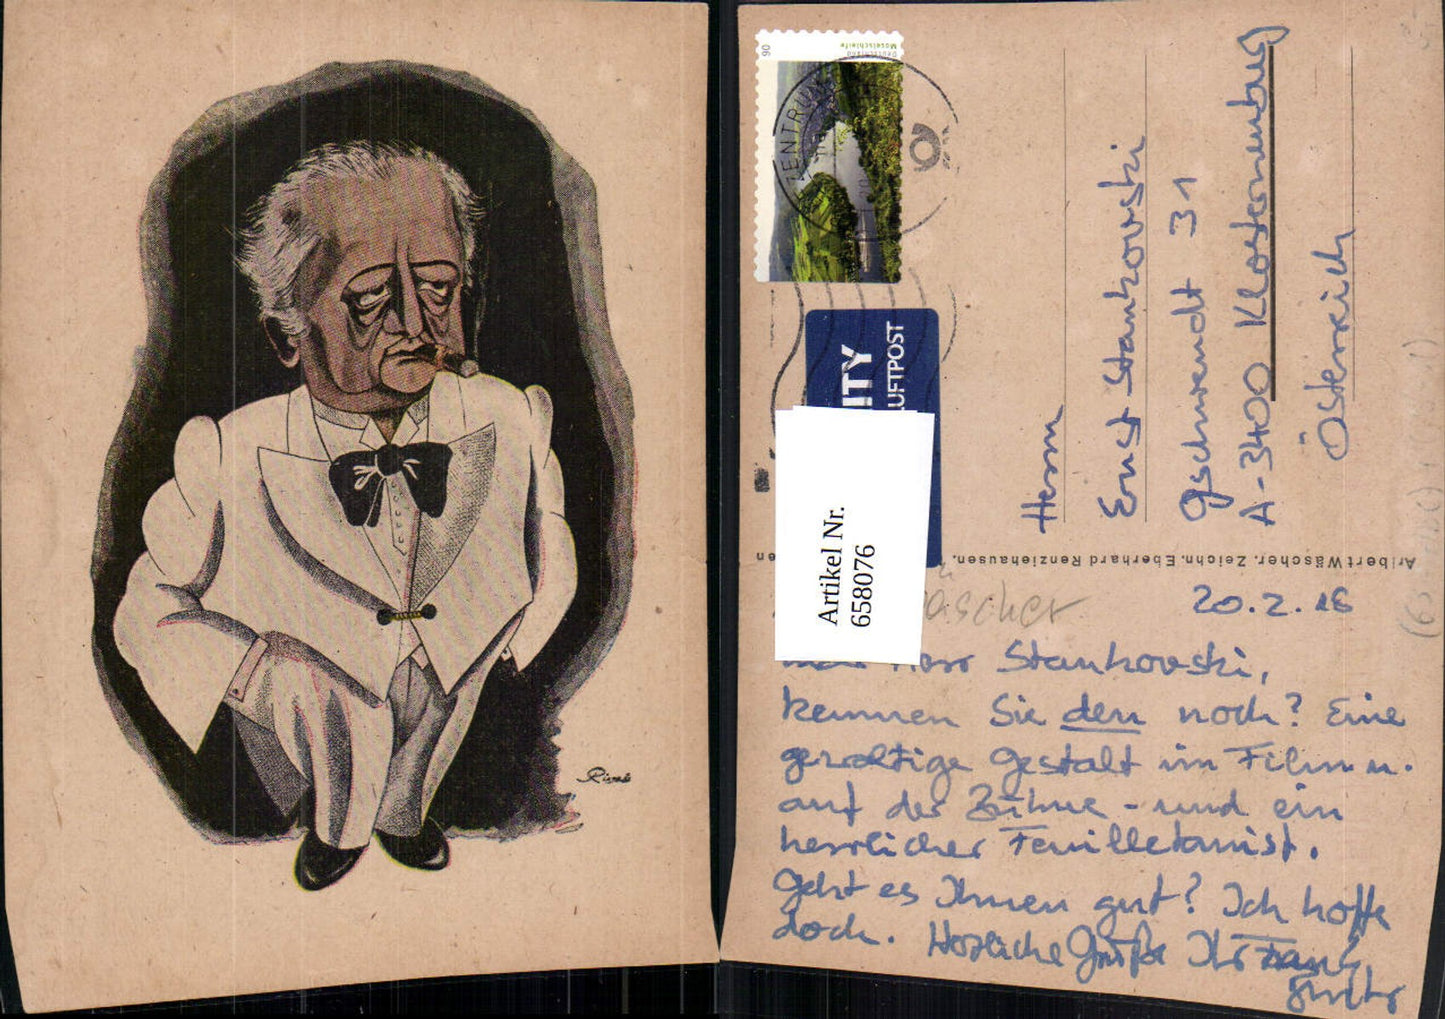 90
Deutschland
Moselschleife
ZENTRUM
ITY
LUFTPOST
Artikel Nr.
658076
Herrn
Ernst Stankovski
Gschwendt 31
A-3400 Klosterneuburg
Österreich
Aribert Wäscher. Zeichn. Eberhard Renziehausen.
äscher
20.2.18
Herr Stankovski,
kennen Sie den noch? Eine
gewaltige Gestalt im Film u.
auf der Bühne - und ein
herrlicher Feuilletonist.
Geht es Ihnen gut? Ich hoffe
doch. Herzliche Grüße Ihr